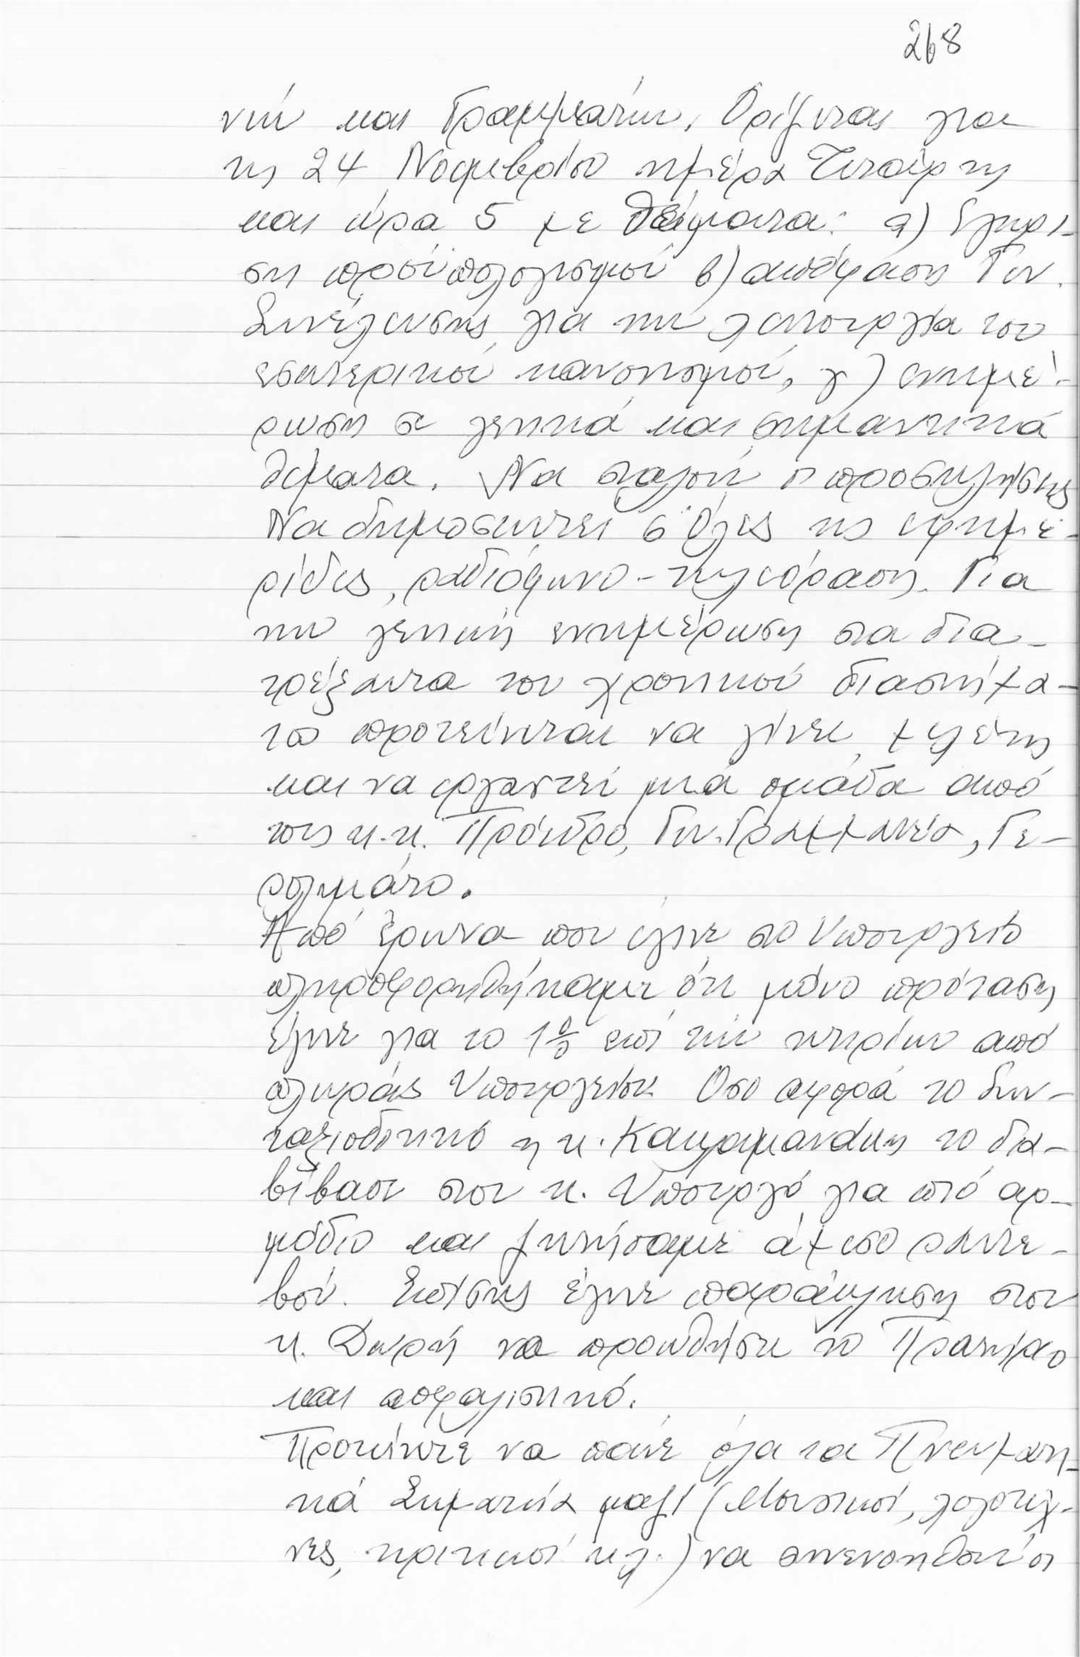 268
νών και Γραμμάτων. Ορίζεται για
τις 24 Νοεμβρίου ημέρα Τετάρτη
και ώρα 5 με θέματα: α) Έγκρι-
ση προϋπολογισμού β) απόφαση Γεν.
Συνέλευσης για την λειτουργία του
εσωτερικού κανονισμού, γ) ενημέ-
ρωση σε γενικά και σημαντικά
θέματα. Να σταλούν οι προσκλήσεις
Να δημοσιευτεί σ' όλες τις εφημε-
ρίδες, ραδιόφωνο - τηλεόραση. Για
την γενική ενημέρωση στα δια-
τρέξαντα του χρονικού διαστήμα-
τος προτείνεται να γίνει μελέτη
και να εργαστεί μιά ομάδα από
τους κ.κ. Πρόεδρο, Γεν. Γραμματέα, Γε-
ρολυμάτο.
Από έρευνα που έγινε στο Υπουργείο
πληροφορηθήκαμε ότι μόνο πρόταση
έγινε για το 1% επί των κτιρίων από
πλευράς Υπουργείου. Όσο αφορά το Συν-
ταξιοδοτικό η κ. Καψωμανάκη το δια-
βίβασε στον κ. Υπουργό για πιό αρ-
μόδιο και ζητήσαμε άμεσο ραντε-
βού. Επίσης έγινε παράκληση στον
κ. Δωρή να προωθήσει το
και ασφαλιστικό.
Προτείνετε να πάνε όλα τα Πνευματι-
κά Σωματεία μαζί (Μουσικοί, λογοτέχ-
νες, κριτικοί κλ.) να συνεννοηθούν οι